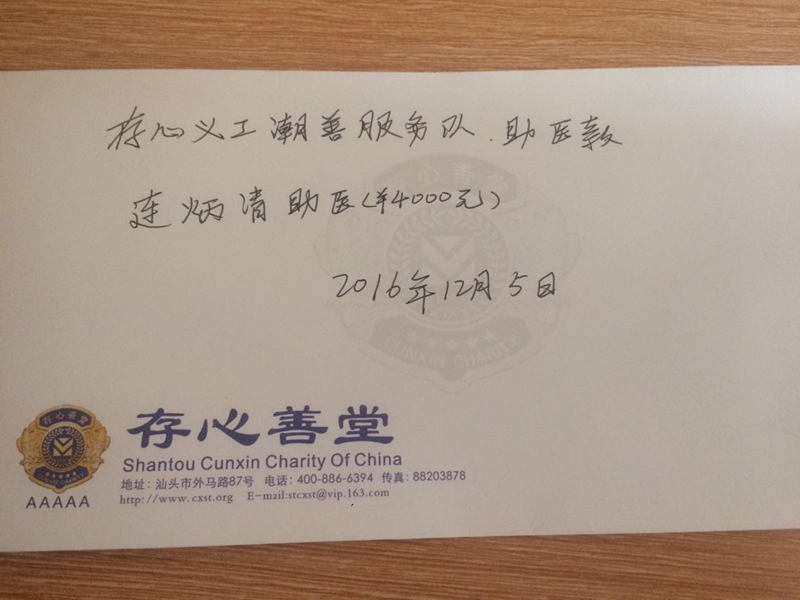 存心义工潮善服务队.助医款
连炳清助医(¥4000元)
2016年12月5日
存心善堂
SHNNXIN CHARITY
存心善堂
存心善堂
Shantou Cunxin Charity Of China
地址：汕头市外马路87号 电话：400-886-6394 传真：88203878
http://www.cxst.org E-mail:stcxst@vip.163.com
AAAAA